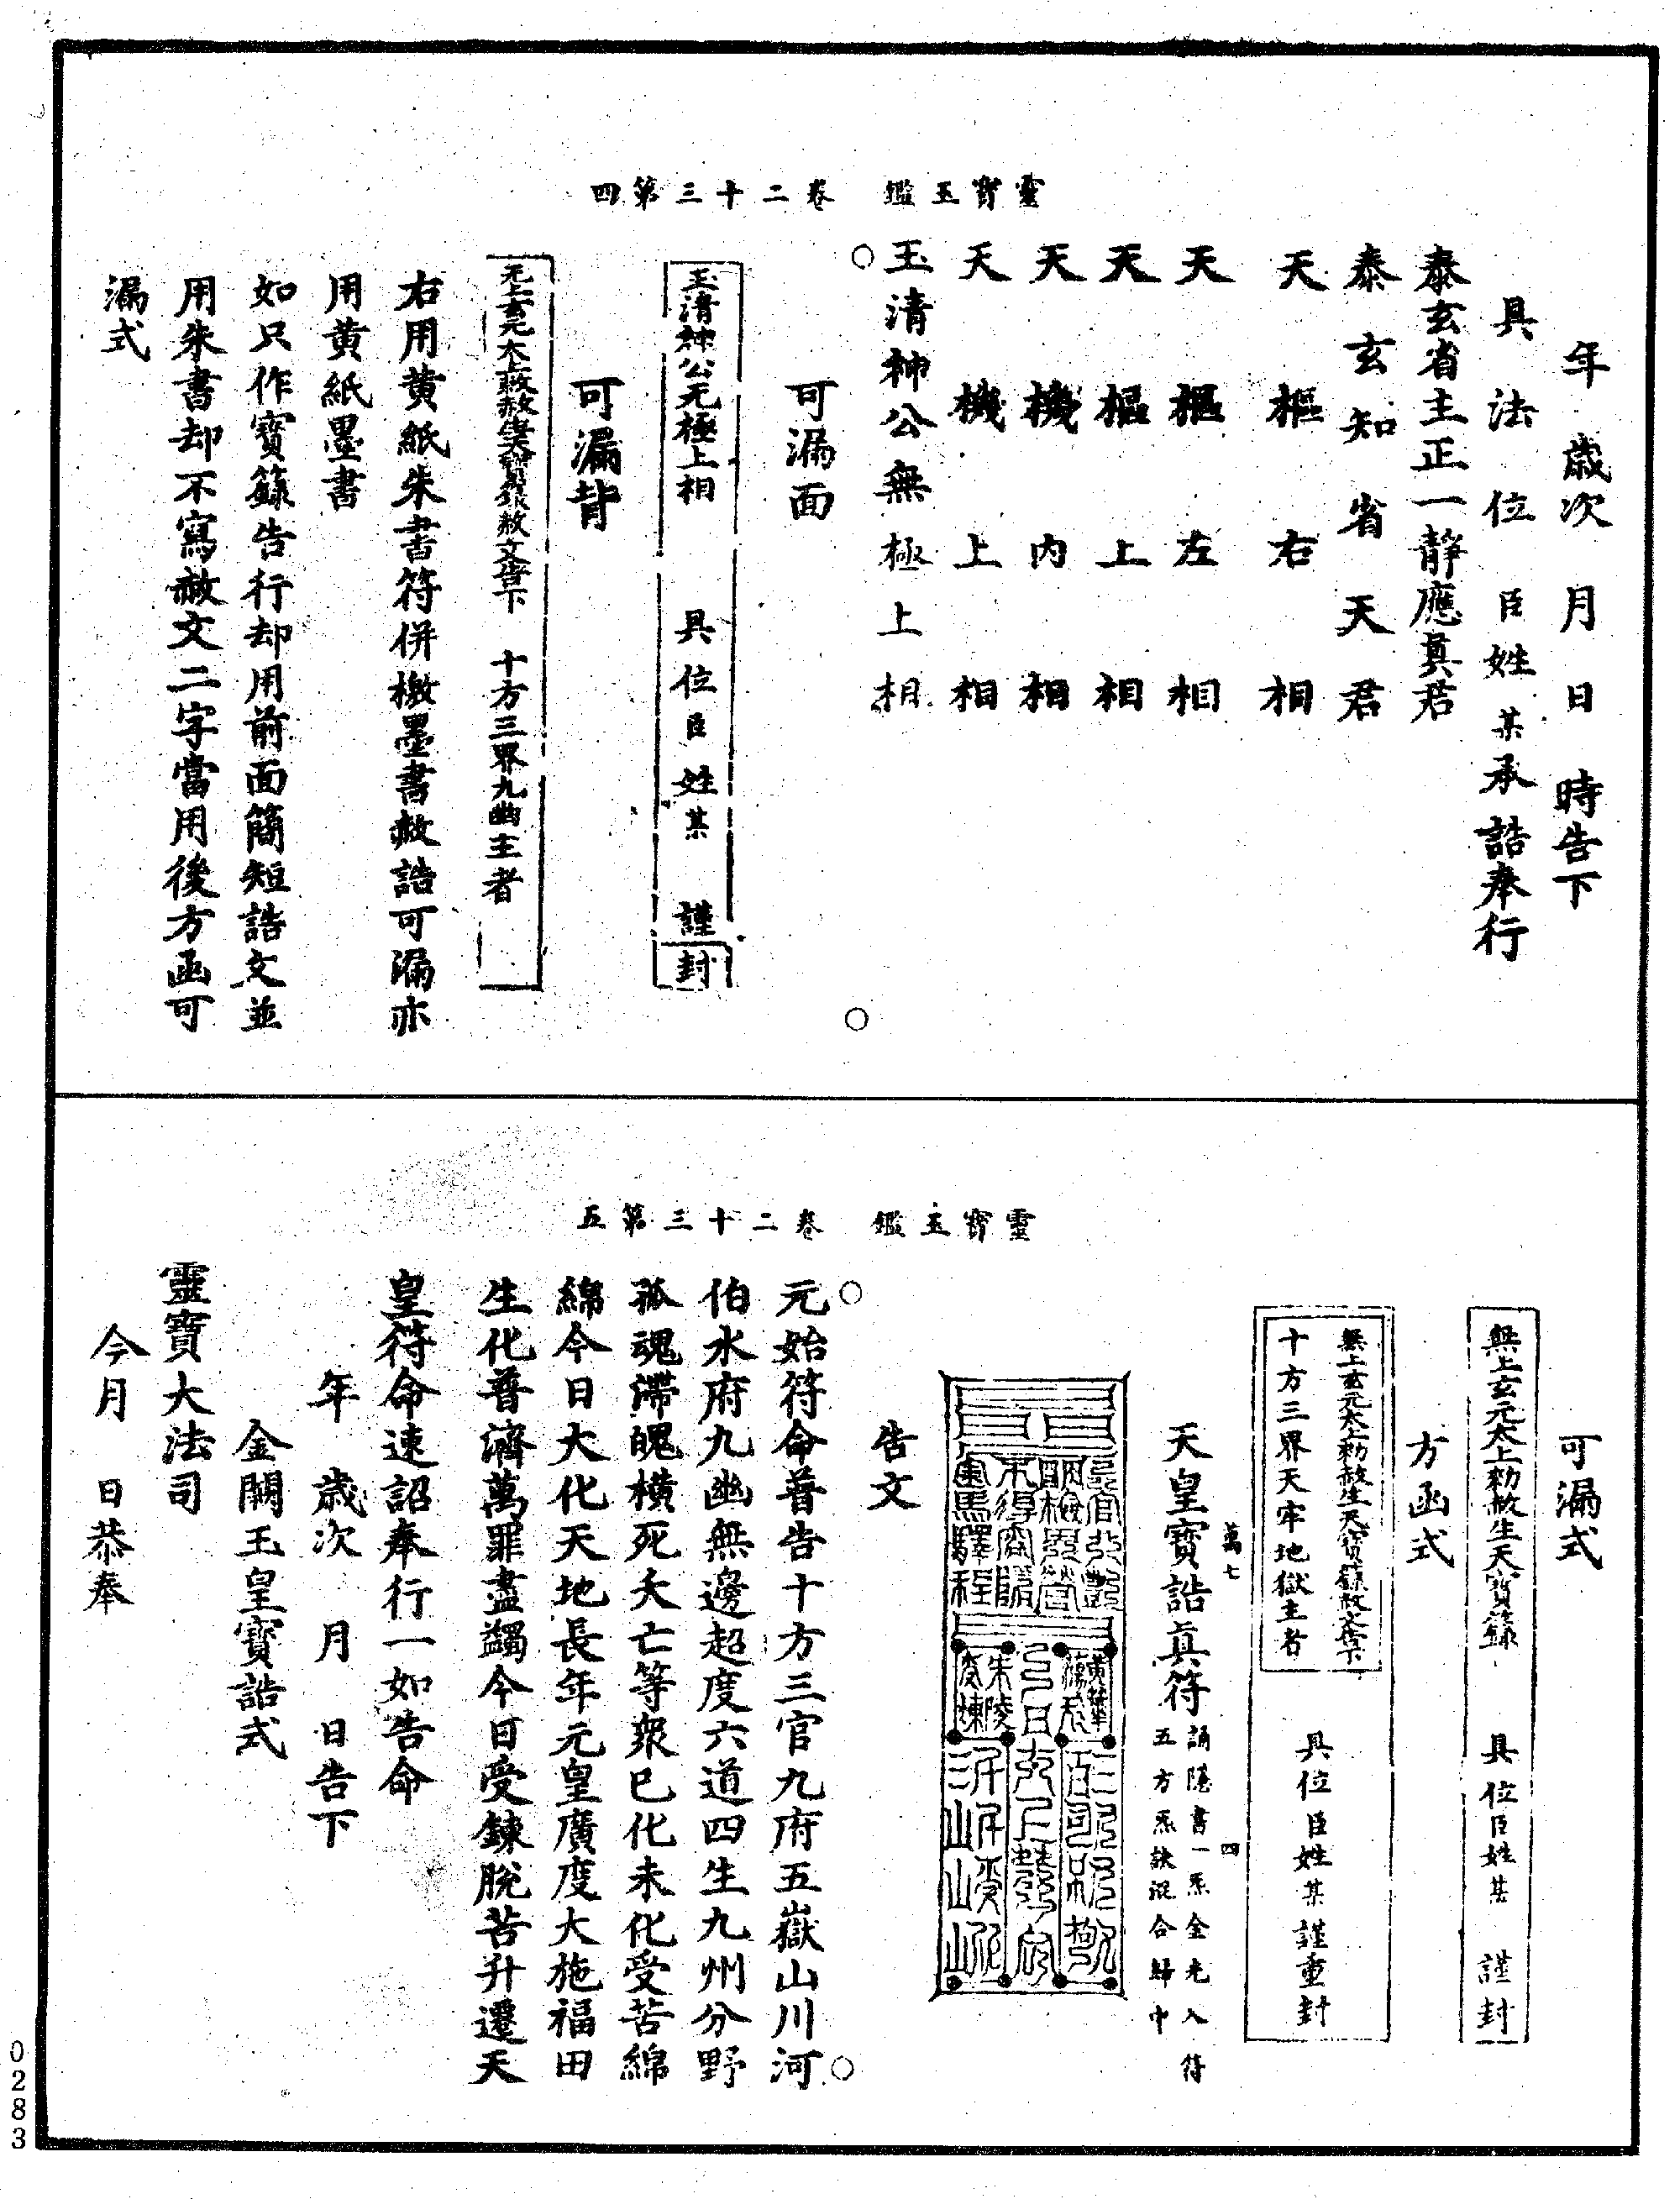 靈寶玉鑑　卷二十三第四
年　歲次　月　日　時告下
具法位臣姓某承誥奉行
泰玄省主正一靜應眞君
泰玄知省天君
天樞右相
天樞左相
天樞上相
天機內相
天機上相
玉清神公無極上相
可漏面
玉清神公无極上相　具位臣姓某　謹封
可漏背
十方三界九幽主者
右用黃紙朱書符併檄墨書赦誥可漏亦
用黃紙墨書
如只作寶籙告行却用前面簡短誥文並
用朱書却不寫赦文二字當用後方函可
漏式
靈寶玉鑑　卷二十三第五
可漏式
無上玄元太上勑赦生天寶籙　具位臣姓某　謹封
方函式
無上玄元太上勑赦生天寶籙赦文告下
十方三界天牢地獄主者
具位臣姓某謹重封
萬七　四
天皇寶誥眞符　誦隱書一炁金光入符
五方炁訣混合歸中
告文
元始符命普告十方三官九府五嶽山川河
伯水府九幽無邊超度六道四生九州分野
孤魂滯魄橫死夭亡等衆已化未化受苦綿
綿今日大化天地長年元皇廣度大施福田
生化普濟萬罪盡蠲今日受鍊脫苦升遷天
皇符命速詔奉行一如告命
年　歲次　月　日告下
金闕玉皇寶誥式
靈寶大法司
今月　日恭奉
0283